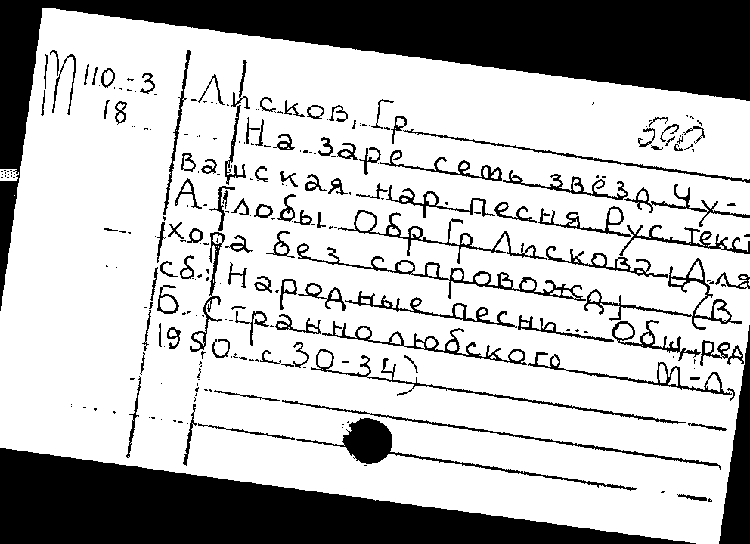 М 110-3
18
590
Лисков, Гр.
На заре семь звёзд. Чу-
вашская нар. песня Рус. текст
А. Глобы Обр. Гр Лискова [Для
хора без сопровожд] (В
сб.: Народные песни... Общ. ред
Б. Страннолюбского М-Л,
1950. с 30-34)